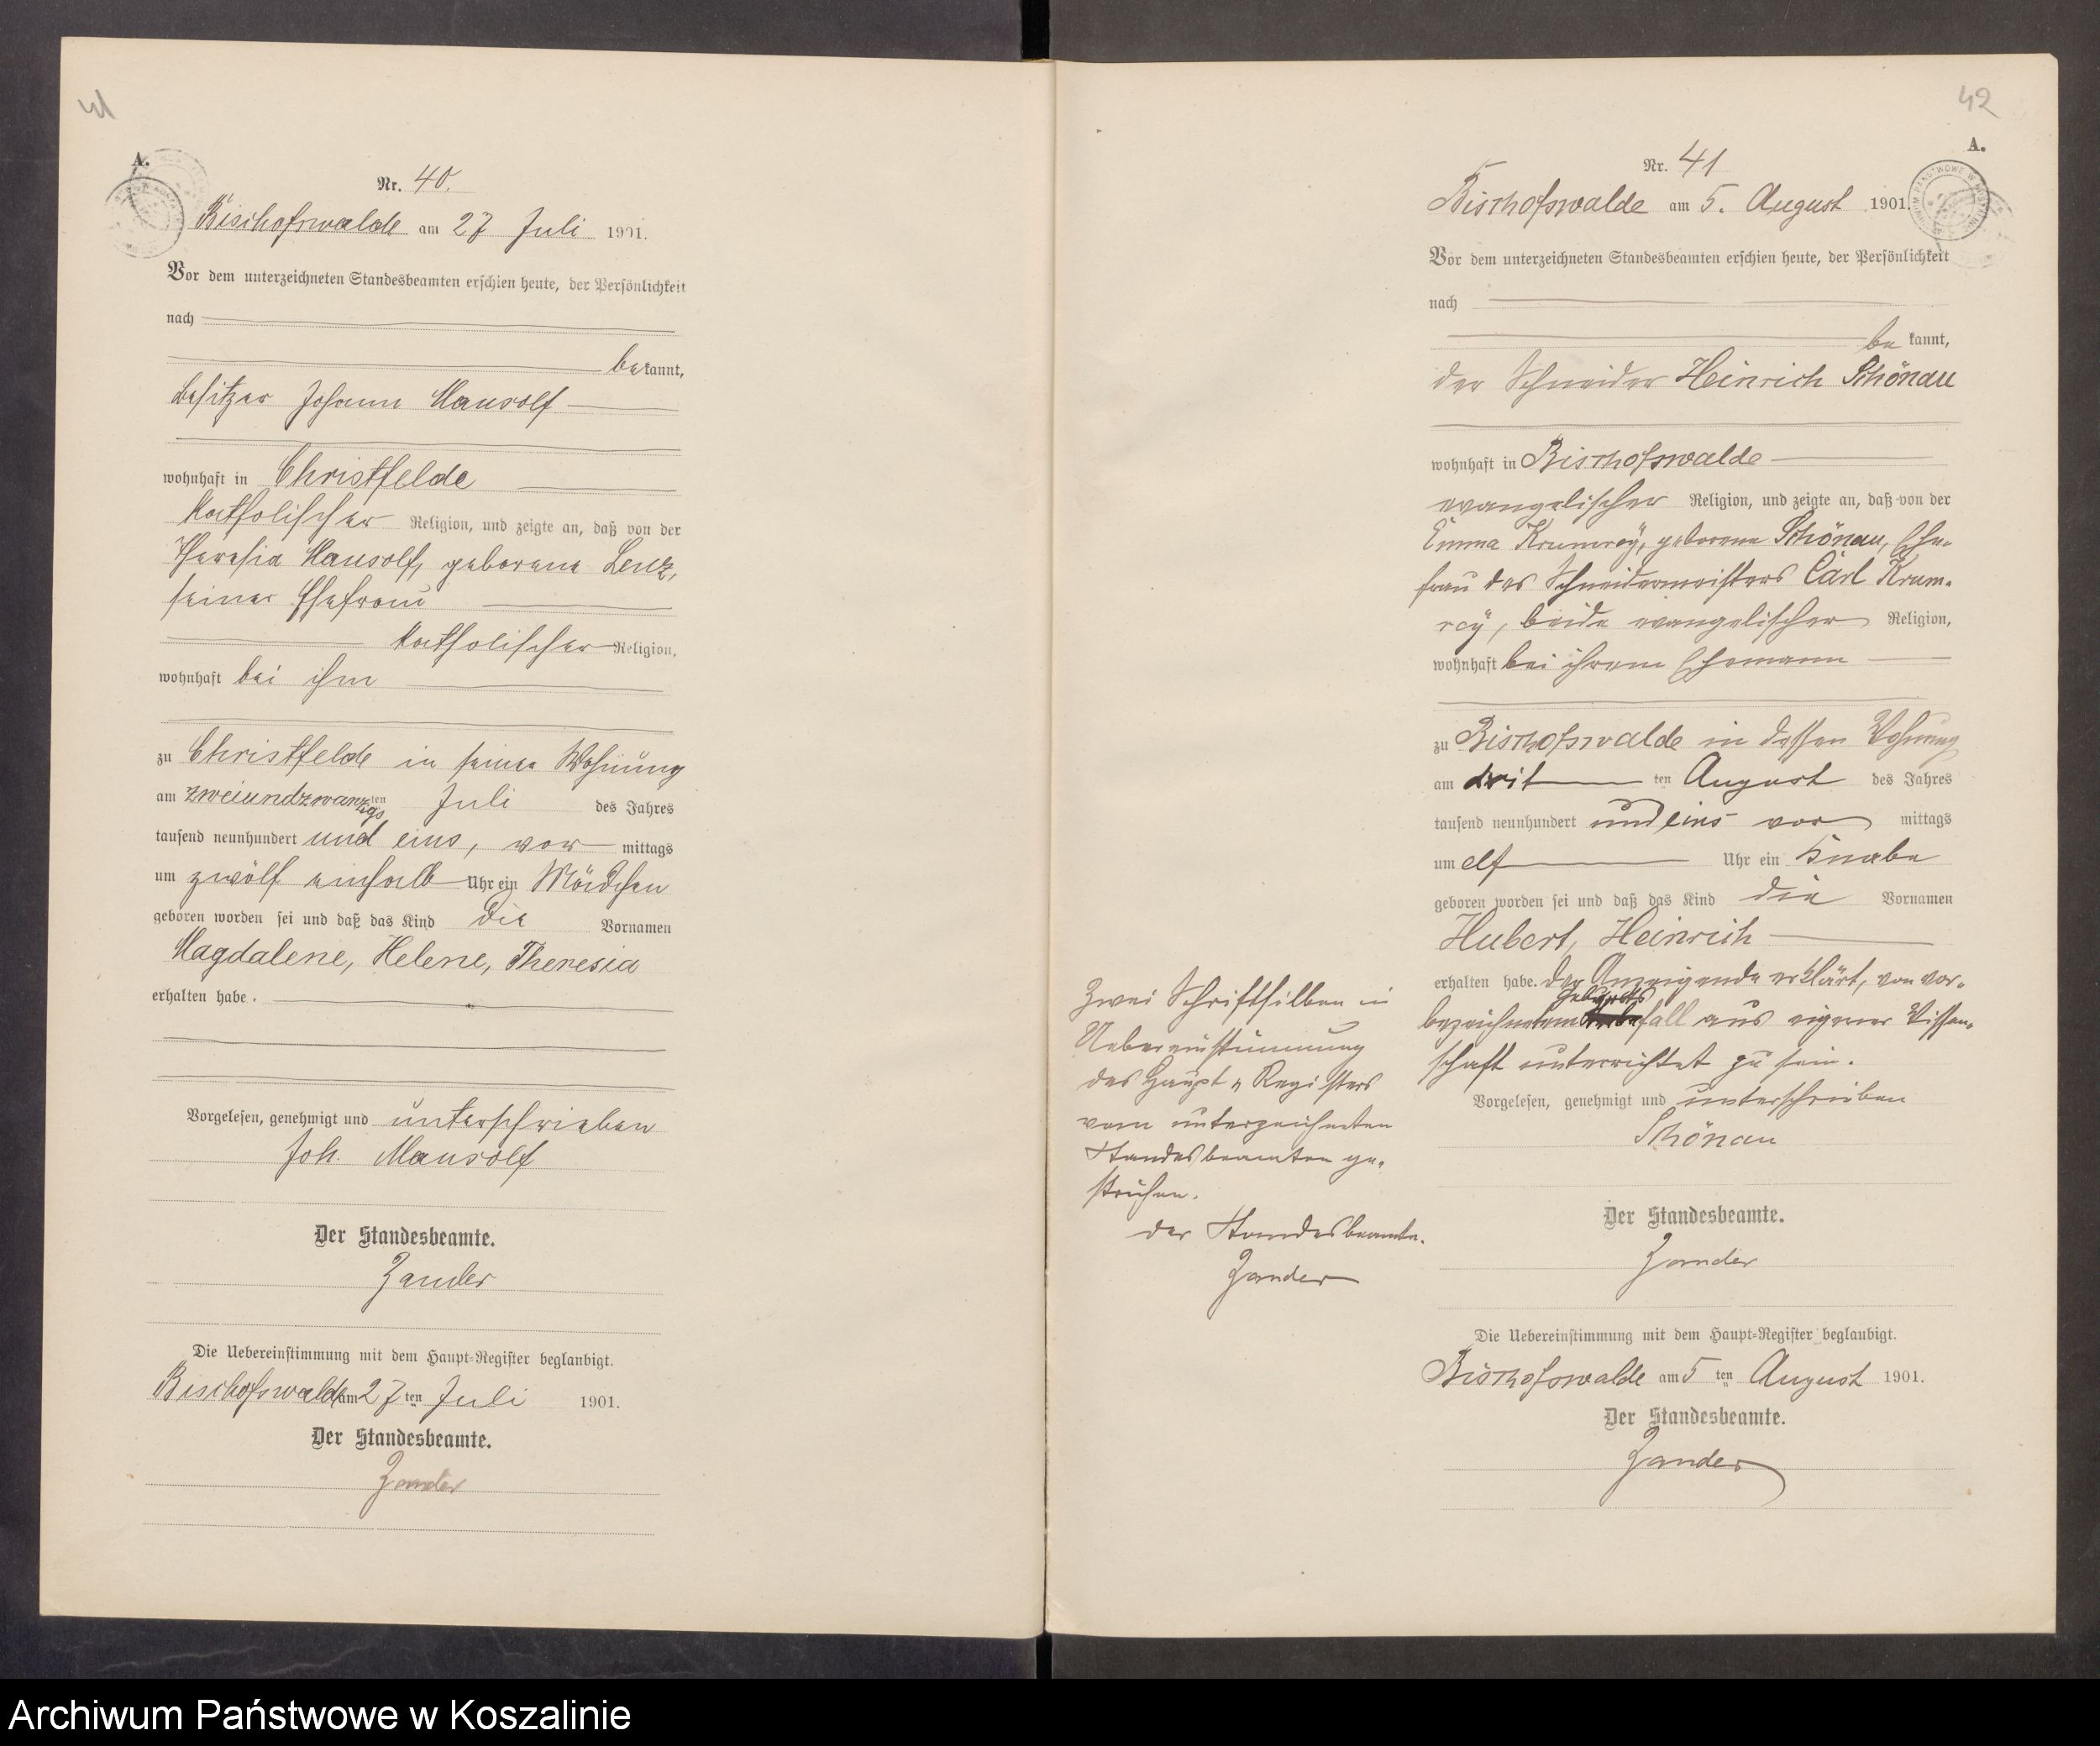 41
A.
Nr. 40.
Bischofswalde am 27 Juli 1901.
Vor dem unterzeichneten Standesbeamten erschien heute, der Persönlichkeit
nach
bekannt,
Besitzer Johann Mausolf
wohnhaft in Christfelde
katholischer Religion, und zeigte an, daß von der
Theresia Mausolf, geborene Lenz,
seiner Ehefrau
katholischer Religion,
wohnhaft bei ihm
zu Christfelde in seiner Wohnung
am zweiundzwanzigsten Juli des Jahres
tausend neunhundert und eins, vor mittags
um zwölf einhalb Uhr ein Mädchen
geboren worden sei und daß das Kind die Vornamen
Magdalene, Helene, Theresia
erhalten habe.
Vorgelesen, genehmigt und unterschrieben
Joh. Mausolf
Der Standesbeamte.
Zander
Die Uebereinstimmung mit dem Haupt-Register beglaubigt.
Bischofswalde am 27ten Juli 1901.
Der Standesbeamte.
Zander
42
A.
Nr. 41
Bischofswalde am 5. August 1901.
Vor dem unterzeichneten Standesbeamten erschien heute, der Persönlichkeit
nach
bekannt,
der Schneider Heinrich Schönau
wohnhaft in Bischofswalde
evangelischer Religion, und zeigte an, daß von der
Emma Krumrey, geborene Schönau, Ehe-
frau des Schneidermeisters Carl Krum-
rey, beide evangelischer Religion,
wohnhaft bei ihrem Ehemann
zu Bischofswalde in dessen Wohnung
am dritten August des Jahres
tausend neunhundert und eins vor mittags
um elf Uhr ein Knabe
geboren worden sei und daß das Kind die Vornamen
Hubert, Heinrich
erhalten habe. Der Anzeigende erklärt, von vor-
Geburts
bezeichnetem Sterbefall aus eigener Wissen-
schaft unterrichtet zu sein.
Vorgelesen, genehmigt und unterschrieben
Schönau
Der Standesbeamte.
Zander
Die Uebereinstimmung mit dem Haupt-Register beglaubigt.
Bischofswalde am 5ten August 1901.
Der Standesbeamte.
Zander
Zwei Schriftsilben in
Uebereinstimmung
des Haupt-Registers
vom unterzeichneten
Standesbeamten ge-
strichen.
Der Standesbeamte.
Zander
Archiwum Państwowe w Koszalinie